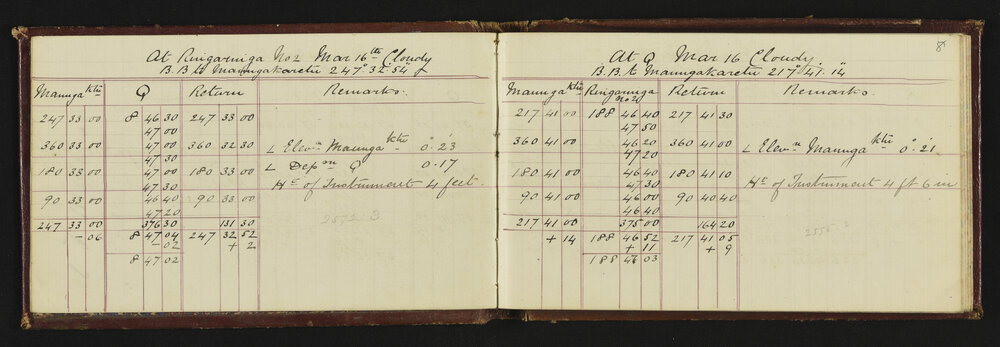 At Ringaringa No 2 Mar 16th Cloudy
B.B to Maungakaretu 247° 32' 54"
Maunga ktu Q Return Remarks.
247 33 00 8 46 30 247 33 00
47 00
360 33 00 47 00 360 32 30 L Elevn Maunga ktu 0°.23'
47 30
180 33 00 47 00 180 33 00 L Depon Q 0.17
47 30 Ht of Instrument 4 feet.
90 33 00 46 40 90 33 00
47 20
247 33 00 376 30 131 30
- 06 8 47 04 247 32 52
- 02 + 2
8 47 02
8
At Q Mar 16 Cloudy.
B.B. to Maungakaretu 217° 41' 14"
Maunga ktu Ringaringa No 2 Return Remarks.
217 41 00 188 46 40 217 41 30
47 50
360 41 00 46 20 360 41 00 L Elevn Maunga ktu 0°.21'
47 20
180 41 00 46 40 180 41 10
47 30 Ht of Instrument 4 ft 6 in
90 41 00 46 00 90 40 40
46 40
217 41 00 375 00 164 20
+ 14 188 46 52 217 41 05
+ 11 + 9
188 47 03